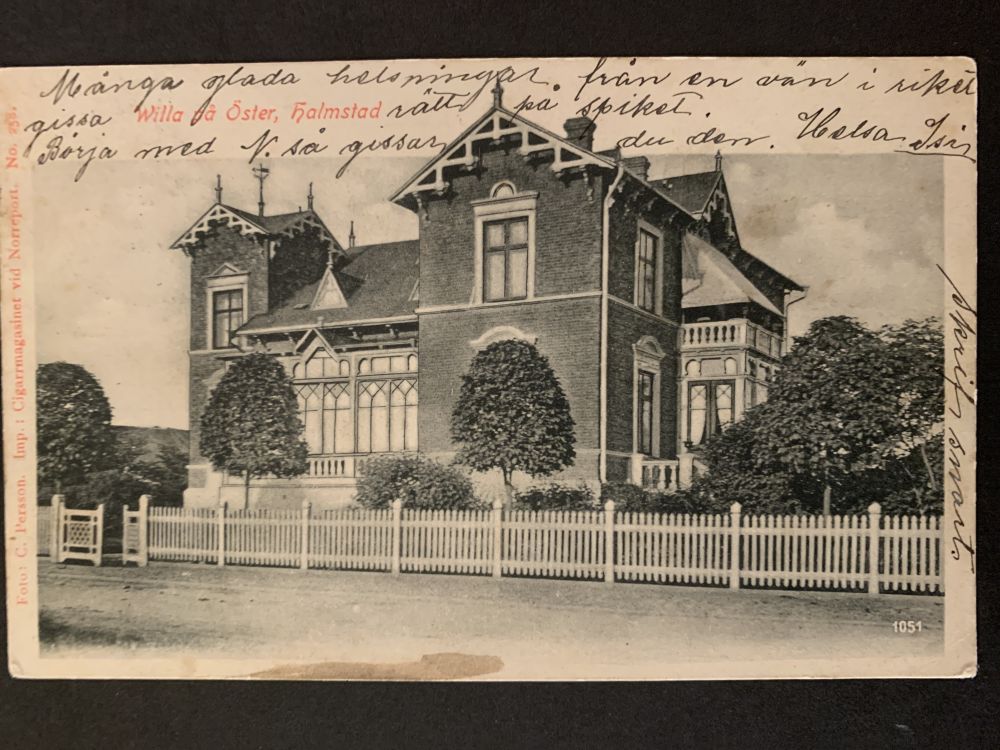 Många glada helsningar från en vän i riket
gissa rätt på spiket.
Willa på Öster, Halmstad
Börja med N. så gissar du den. Helsa Isi
Skrif snart.
Foto: C. Persson. Imp.: Cigarrmagasinet vid Norreport. No.
1051